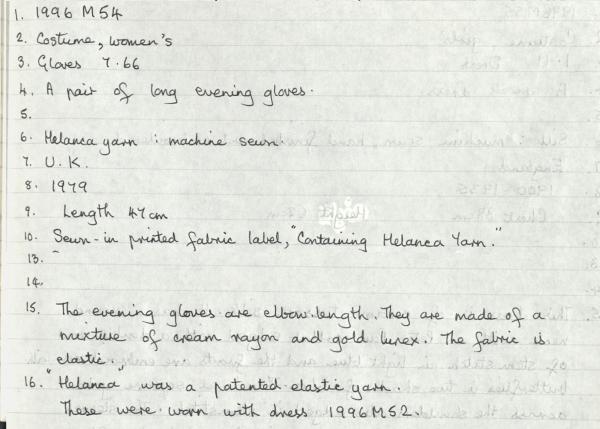 1. 1996 M54
2. Costume, women's
3. Gloves 7.66
4. A pair of long evening gloves.
5.
6. Helanca yarn : machine sewn.
7. U.K.
8. 1979
9. Length 47cm
10. Sewn-in printed fabric label, "Containing Helanca Yarn."
13. -
14.
15. The evening gloves are elbow-length. They are made of a
mixture of cream rayon and gold lurex. The fabric is
elastic.
16. "Helanca" was a patented elastic yarn.
These were worn with dress 1996M52.